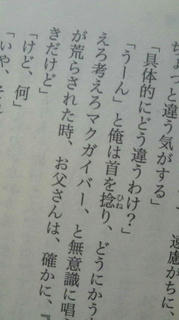 ちょっと違う気がする」
「具体的にどう違うわけ？」
「うーん」と俺は首を捻り、どうにかう
えろ考えろマクガイバー、と無意識に唱
が荒らされた時、お父さんは、確かに、『
きだけど」
「けど、何」
「いや、そ